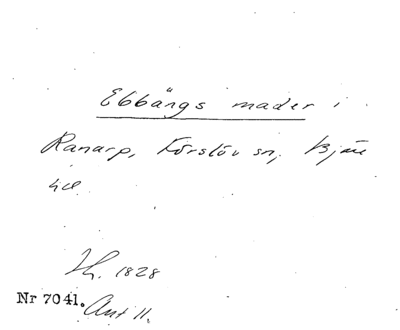 Ebbängs mader i
Ranarp, Förslöv sn, Bjäre
hd.
Th. 1828
Nr 7041. Ant 11.